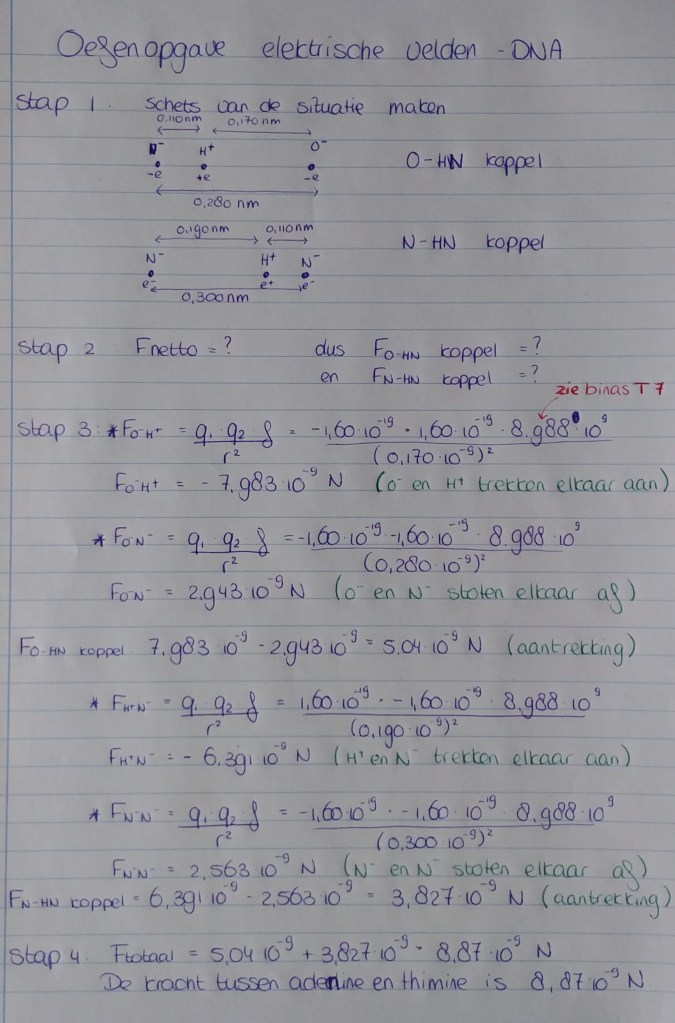 Oefenopgave elektrische velden - DNA
stap 1. schets van de situatie maken
0.110nm 0,170nm
N⁻ H⁺ O⁻ O-HN koppel
-e +e -e
0,280 nm
0,190nm 0,110nm
N⁻ H⁺ N⁻ N-HN koppel
e⁻ e⁺ e⁻
0,300nm
stap 2 Fnetto = ? dus F_O-HN koppel = ?
en F_N-HN koppel = ?
zie binas T 7
stap 3: * F_O⁻H⁺ = q₁ q₂ f / r² = -1,60·10⁻¹⁹ · 1,60·10⁻¹⁹ · 8.988·10⁹ / (0,170·10⁻⁹)²
F_O⁻H⁺ = - 7,983·10⁻⁹ N (O⁻ en H⁺ trekken elkaar aan)
* F_O⁻N⁻ = q₁ q₂ f / r² = -1,60·10⁻¹⁹ · -1,60·10⁻¹⁹ · 8.988·10⁹ / (0,280·10⁻⁹)²
F_O⁻N⁻ = 2,943·10⁻⁹ N (O⁻ en N⁻ stoten elkaar af)
F_O-HN koppel 7,983·10⁻⁹ - 2,943·10⁻⁹ = 5,04·10⁻⁹ N (aantrekking)
* F_H⁺N⁻ = q₁ q₂ f / r² = 1,60·10⁻¹⁹ · -1,60·10⁻¹⁹ · 8,988·10⁹ / (0,190·10⁻⁹)²
F_H⁺N⁻ = - 6,391·10⁻⁹ N (H⁺ en N⁻ trekken elkaar aan)
* F_N⁻N⁻ = q₁ q₂ f / r² = -1,60·10⁻¹⁹ · -1,60·10⁻¹⁹ · 8,988·10⁹ / (0,300·10⁻⁹)²
F_N⁻N⁻ = 2,563·10⁻⁹ N (N⁻ en N⁻ stoten elkaar af)
F_N-HN koppel = 6,391·10⁻⁹ - 2,563·10⁻⁹ = 3,827·10⁻⁹ N (aantrekking)
stap 4: Ftotaal = 5,04·10⁻⁹ + 3,827·10⁻⁹ = 8,87·10⁻⁹ N
De kracht tussen adenine en thimine is 8,87·10⁻⁹ N